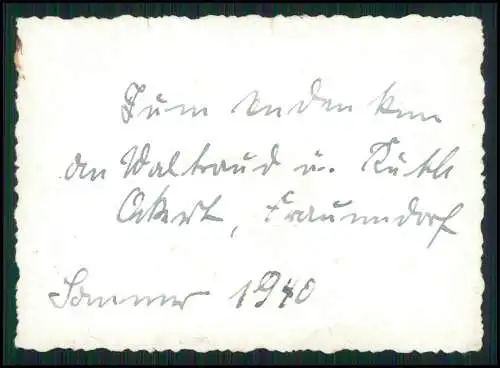 Zum Andenken
an Waltraud u. Ruth
Ackert, Frauendorf
Sommer 1940